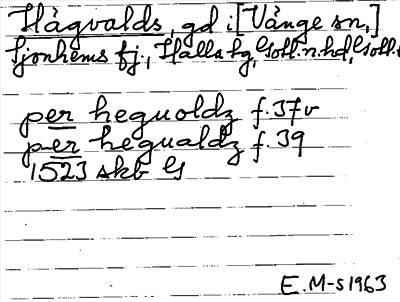 Hägvalds, gd i [Vänge sn,]
Sjonhems fj., Halla hg, Gotl. n. hd, Gotl. l
per heguoldz f. 37v
per hegualdz f. 39
1523 skb G
E.M-s 1963